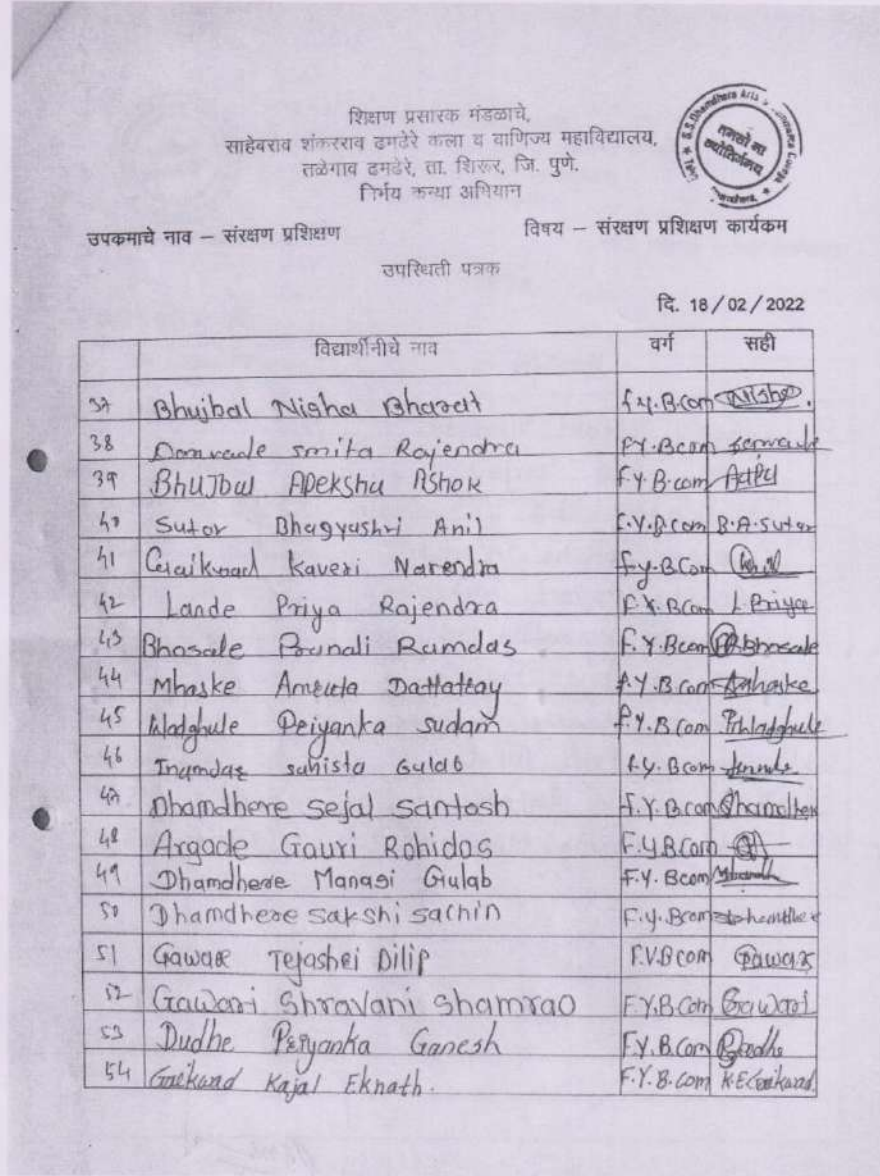 शिक्षण प्रसारक मंडळाचे,
साहेबराव शंकरराव ढमढेरे कला व वाणिज्य महाविद्यालय,
तळेगाव ढमढेरे, ता. शिरूर, जि. पुणे.
निर्भय कन्या अभियान
तमसो मा ज्योतिर्गमय
उपकमाचे नाव – संरक्षण प्रशिक्षण विषय – संरक्षण प्रशिक्षण कार्यकम
उपस्थिती पत्रक
दि. 18/02/2022
विद्यार्थीनीचे नाव वर्ग सही
३७ Bhujbal Nisha Bharat F.Y.B.com Nisha
३८ Smita Rajendra F.Y.Bcom
३९ Bhujbal Apeksha Ashok F.Y B.com
४० Sutar Bhagyashri Anil F.Y.B.com B.A.sutar
४१ Gaikwad Kaveri Narendra F.y.BCom
४२ Lande Priya Rajendra F.Y.BCom L.Priya
४३ Bhosale Pranali Ramdas F.Y.Bcom Bhosale
४४ Mhaske Amruta Dattatray F.Y.B.com Amhaske
४५ Wadghule Priyanka sudam F.Y.B.com PWadghule
४६ Inamdar sanista Gulab F.y.Bcom
४७ Dhamdhere Sejal Santosh F.Y.B.com Dhamdhere
४८ Argade Gauri Rohidas F.Y.BCom
४९ Dhamdhere Manasi Gulab F.Y. Bcom
५० Dhamdhere sakshi sachin F.y.Bcom
५१ Gawar Tejashri Dilip F.Y.Bcom Gawar
५२ Gawari Shravani Shamrao F.Y.B.Com Gawari
५३ Dudhe Priyanka Ganesh F.Y.B.Com Dudhe
५४ Gaikwad Kajal Eknath. F.Y.B.com K.E.Gaikwad